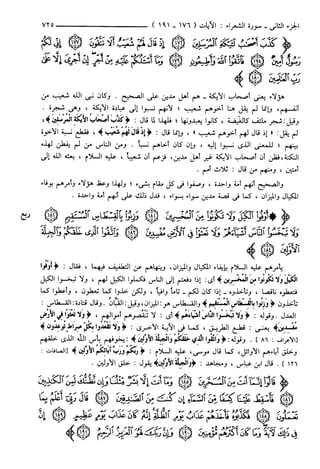 الجزء الثاني - سورة الشعراء : الآيات (١٧٦ - ١٩١) ٧٢٥
﴿ كَذَّبَ أَصْحَابُ لْئَيْكَةِ الْمُرْسَلِينَ ﴿١٧٦﴾ إِذْ قَالَ لَهُمْ شُعَيْبٌ أَلَا تَتَّقُونَ ﴿١٧٧﴾ إِنِّي لَكُمْ
رَسُولٌ أَمِينٌ ﴿١٧٨﴾ فَاتَّقُوا اللَّهَ وَأَطِيعُونِ ﴿١٧٩﴾ وَمَا أَسْأَلُكُمْ عَلَيْهِ مِنْ أَجْرٍ إِنْ أَجْرِيَ إِلَّا عَلَىٰ
رَبِّ الْعَالَمِينَ ﴿١٨٠﴾ ﴾
هؤلاء يعني أصحاب الأيكة - هم أهل مدين على الصحيح . وكان نبي الله شعيب من
أنفسهم، وإنما لم يقل هنا أخوهم شعيب ؛ لأنهم نسبوا إلى عبادة الأيكة ، وهي شجرة .
وقيل : شجر ملتف كالغيضة ، كانوا يعبدونها ؛ فلهذا لما قال : ﴿ كَذَّبَ أَصْحَابُ لْئَيْكَةِ الْمُرْسَلِينَ ﴾ ،
لم يقل : « إذ قال لهم أخوهم شعيب » ، وإنما قال : ﴿ إِذْ قَالَ لَهُمْ شُعَيْبٌ ﴾ ، فقطع نسبة الأخوة
بينهم ؛ للمعنى الذي نسبوا إليه ، وإن كان أخاهم نسباً . ومن الناس من لم يفطن لهذه
النكتة، فظن أن أصحاب الأيكة غير أهل مدين، فزعم أن شعيباً ، عليه السلام ، بعثه الله إلى
أمتين . ومنهم من قال : ثلاث أمم .
والصحيح أنهم أمة واحدة ، وصفوا في كل مقام بشيء ؛ ولهذا وعظ هؤلاء وأمرهم بوفاء
المكيال والميزان ، كما في قصة مدين سواء بسواء ، فدل ذلك على أنهم أمة واحدة .
﴿ ۞ أَوْفُوا الْكَيْلَ وَلَا تَكُونُوا مِنَ الْمُخْسِرِينَ ﴿١٨١﴾ وَزِنُوا بِالْقِسْطَاسِ الْمُسْتَقِيمِ ﴿١٨٢﴾ ربع
وَلَا تَبْخَسُوا النَّاسَ أَشْيَاءَهُمْ وَلَا تَعْثَوْا فِي الْأَرْضِ مُفْسِدِينَ ﴿١٨٣﴾ وَاتَّقُوا الَّذِي خَلَقَكُمْ وَالْجِبِلَّةَ الْأَوَّلِينَ
﴿١٨٤﴾ ﴾
يأمرهم عليه السلام بإيفاء المكيال والميزان، وينهاهم عن التطفيف فيهما ، فقال : ﴿ أَوْفُوا
الْكَيْلَ وَلَا تَكُونُوا مِنَ الْمُخْسِرِينَ ﴾ أي : إذا دفعتم إلى الناس فكملوا الكيل لهم ، ولا تبخسوا الكيل
فتعطوه ناقصا ، وتأخذوه - إذا كان لكم - تاماً وافياً ، ولكن خذوا كما تعطون ، وأعطوا كما
تأخذون ﴿ وَزِنُوا بِالْقِسْطَاسِ الْمُسْتَقِيمِ ﴾ والقسطاس هو: الميزان، وقيل: القَبَّان . وقال قتادة: القسطاس :
العدل . وقوله : ﴿ وَلَا تَبْخَسُوا النَّاسَ أَشْيَاءَهُمْ ﴾ أي : لا تنقصوهم أموالهم ، ﴿ وَلَا تَعْثَوْا فِي الْأَرْضِ
مُفْسِدِينَ ﴾ يعنى : قطع الطريق ، كما في الآية الأخرى : ﴿ وَلَا تَقْعُدُوا بِكُلِّ صِرَاطٍ تُوعِدُونَ ﴾
[الأعراف : ٨٦] . وقوله: ﴿ وَاتَّقُوا الَّذِي خَلَقَكُمْ وَالْجِبِلَّةَ الْأَوَّلِينَ ﴾ : يخوفهم بأس الله الذي خلقهم
وخلق آباءهم الأوائل، كما قال موسى، عليه السلام : ﴿ رَبُّكُمْ وَرَبُّ آبَائِكُمُ الْأَوَّلِينَ ﴾ [الصافات :
١٢٦ ] . قال ابن عباس ، ومجاهد : ﴿ وَالْجِبِلَّةَ الْأَوَّلِينَ ﴾ يقول : خلق الأولين .
﴿ قَالُوا إِنَّمَا أَنْتَ مِنَ الْمُسَحَّرِينَ ﴿١٨٥﴾ وَمَا أَنْتَ إِلَّا بَشَرٌ مِثْلُنَا وَإِنْ نَظُنُّكَ لَمِنَ
الْكَاذِبِينَ ﴿١٨٦﴾ فَأَسْقِطْ عَلَيْنَا كِسَفًا مِنَ السَّمَاءِ إِنْ كُنْتَ مِنَ الصَّادِقِينَ ﴿١٨٧﴾ قَالَ رَبِّي أَعْلَمُ بِمَا
تَعْمَلُونَ ﴿١٨٨﴾ فَكَذَّبُوهُ فَأَخَذَهُمْ عَذَابُ يَوْمِ الظُّلَّةِ إِنَّهُ كَانَ عَذَابَ يَوْمٍ عَظِيمٍ ﴿١٨٩﴾ إِنَّ
فِي ذَٰلِكَ لَآيَةً وَمَا كَانَ أَكْثَرُهُمْ مُؤْمِنِينَ ﴿١٩٠﴾ وَإِنَّ رَبَّكَ لَهُوَ الْعَزِيزُ الرَّحِيمُ ﴿١٩١﴾ ﴾